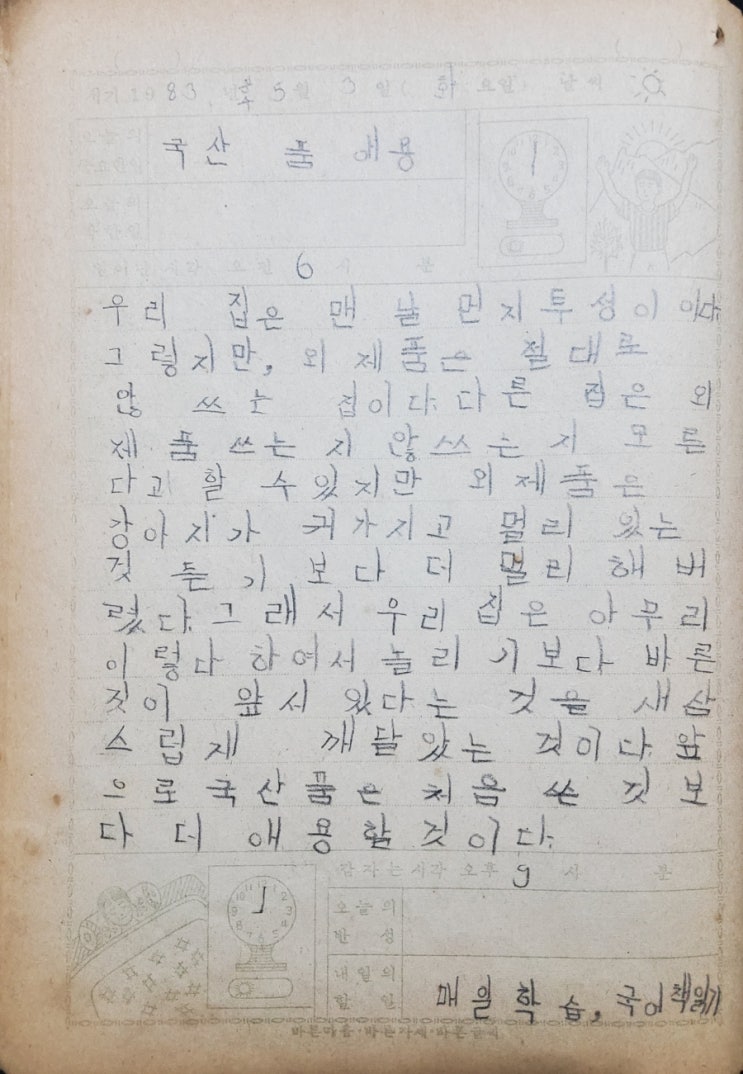 서기 19 83 년 5월 3 일( 화 요일) 날씨
오늘의
중요한일
국산 품 애용
오늘의
착한일
일어난 시각 오전 6 시 분
우리 집은 맨 날 먼지투성이 이다
그렇지만, 외제품은 절대로
않 쓰는 집이다. 다른 집은 외
제품 쓰는지 않쓰는지 모른
다고 할 수있지만 외제품은
강아지가 커가지고 멀리 있는
것 듣기 보다 더 멀리 해버
렸다. 그래서 우리 집은 아무리
이렇다 하여서 놀리기보다 바른
짓이 앞서 있다는 것을 새삼
스럽게 깨달았는 것이다. 앞
으로 국산품은 처음 쓴 것 보
다 더 애용할 것이다.
잠자는시각 오후 9 시 분
오늘의
반 성
내일의
할 일
매일학습, 국어책읽기
바른마음·바른자세·바른글씨